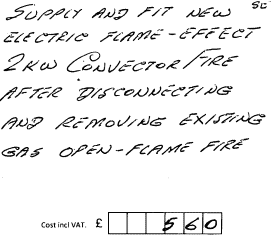 SUPPLY AND FIT NEW
ELECTRIC FLAME-EFFECT
2KW CONVECTOR FIRE
AFTER DISCONNECTING
AND REMOVING EXISTING
GAS OPEN-FLAME FIRE
Cost incl VAT. £ 560